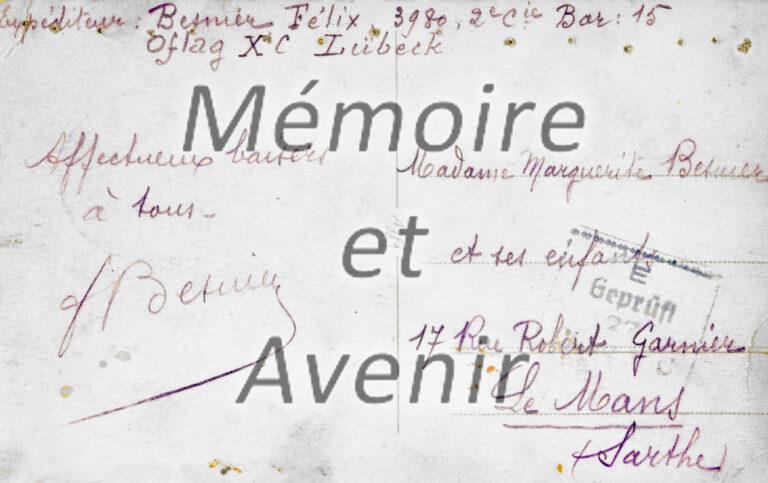 Expéditeur : Besnier Félix, 3980, 2e Cie Bar : 15
Oflag X C Lübeck
Mémoire
et
Avenir
Affectueux baisers
à tous.
F Besnier
Madame Marguerite Besnier
et ses enfants
Geprüft
17 Rue Robert Garnier
Le Mans
Sarthe